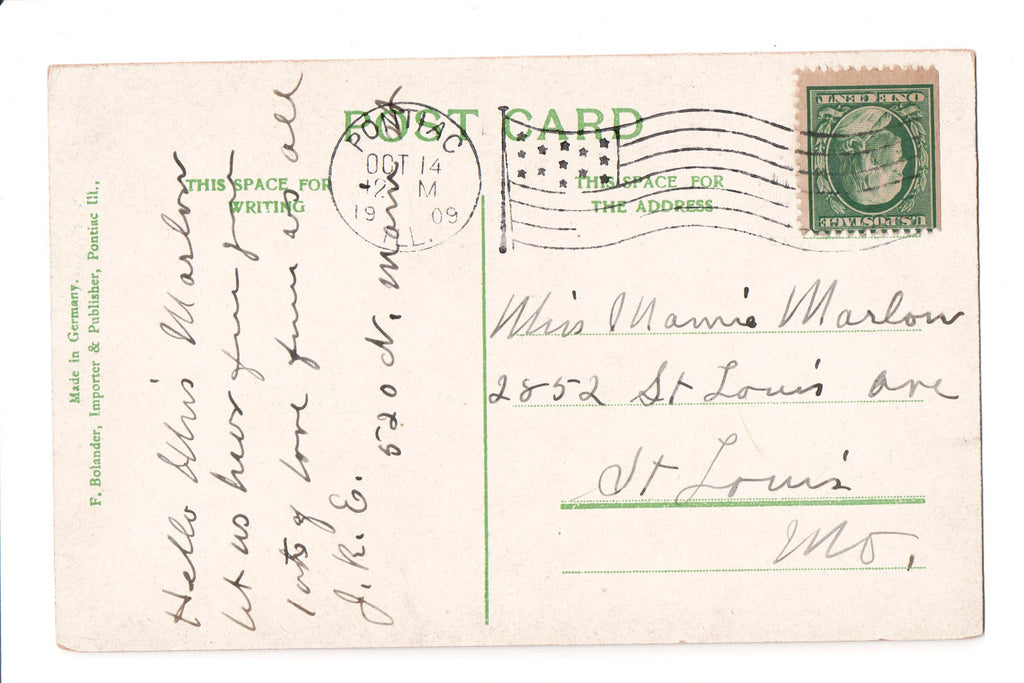 POST CARD
THIS SPACE FOR
WRITING
THIS SPACE FOR
THE ADDRESS
PONTIAC
OCT 14
12 M
1909
ILL.
ONE CENT
U.S. POSTAGE
Made in Germany.
F. Bolander, Importer & Publisher, Pontiac Ill.,
Hello Miss Marlow
let us hear from you
lots of love from us all
J. R. E. 520 N. Main
Miss Mamie Marlow
2852 St Louis Ave
St Louis
Mo,